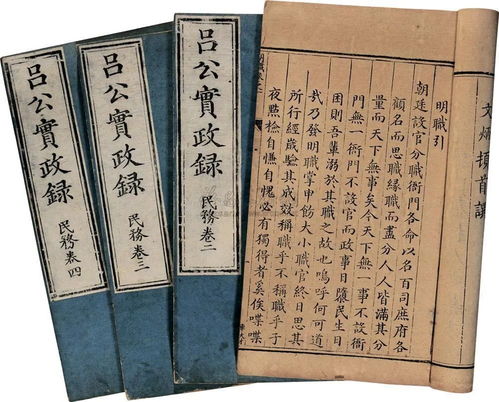 吕公實政録
民務卷四
吕公實政録
民務卷三
吕公實政録
民務卷二
文 頓首謹
明職引
朝廷設官分職衙門各命以名百司庶府各
顧名而思職緣職而盡分人人皆滿其分
量而天下無事矣今天下無一事不設衙
門無一衙門不設官而政事日隳民生日
困則吾輩溺於其職之故也嗚呼何可道
哉乃發明職掌申飭大小職官終日思其
所行經歲驗其成效稱職乎不稱職乎子
夜點檢自慊自愧必有獨得者奚俟喋喋